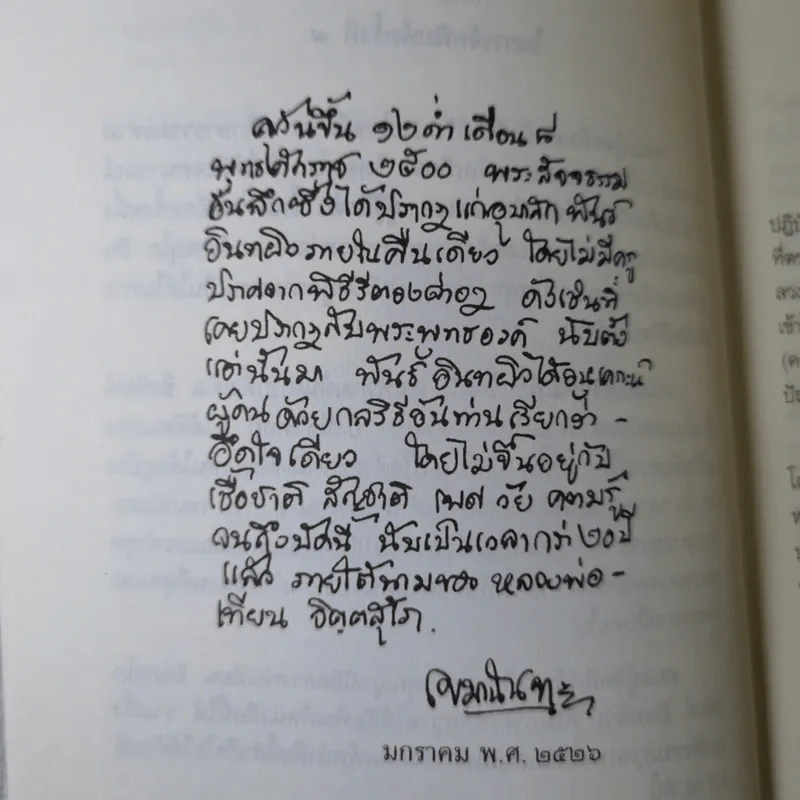 ครั้นขึ้น ๑๒ ค่ำ เดือน ๘
พุทธศักราช ๒๕๐๐ พระสัจจธรรม
อันลึกซึ้งได้ปรากฏแก่อุบาสก พันธ์
อินทผิวภายในคืนเดียว โดยไม่มีครู
ปราศจากพิธีรีตองต่างๆ ดังเช่นที่
เคยปรากฏกับพระพุทธองค์ นับตั้ง
แต่นั้นมา พันธ์ อินทผิวได้อนุเคราะห์
ผู้คนด้วยกลวิธีอันท่านเรียกว่า -
อึดใจเดียว โดยไม่ขึ้นอยู่กับ
เชื้อชาติ สัญชาติ เพศ วัย ความรู้
จนถึงบัดนี้ นับเป็นเวลากว่า ๒๐ ปี
แล้ว ภายใต้นามของ หลวงพ่อ -
เทียน จิตฺตสุโภ.
เขมานันทะ
มกราคม พ.ศ. ๒๕๒๖
ปฏิบ
ที่ตา
เข้า
(ค
ปัย
โด